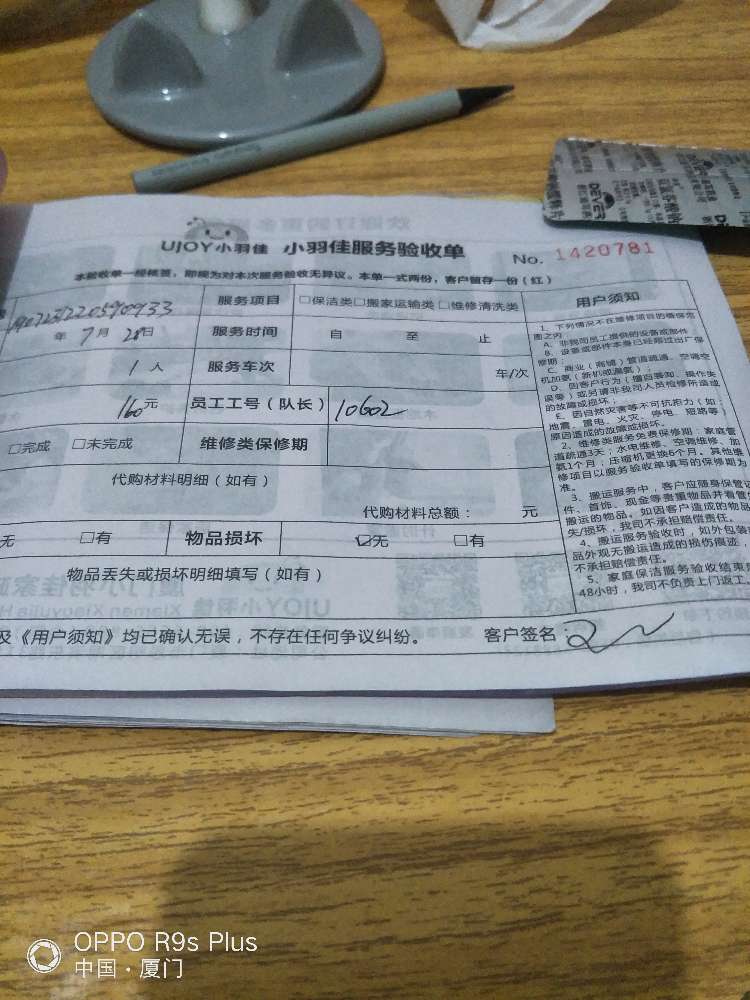 UJOY小羽佳 小羽佳服务验收单 No. 1420781
本验收单一经核签，即视为对本次服务验收无异议。本单一式两份，客户留存一份（红）
服务项目 □保洁类□搬家运输类□维修清洗类
年 7 月 28日 服务时间 自 至 止
1 人 服务车次 车/次
160元 员工工号（队长） 10602
□完成 □未完成 维修类保修期
代购材料明细（如有）
代购材料总额： 元
无 □有 物品损坏 ☑无 □有
物品丢失或损坏明细填写（如有）
及《用户须知》均已确认无误，不存在任何争议纠纷。 客户签名：
用户须知
1、下列情况不在维修项目的质保范
围之内
A、非我司员工提供的设备或部件
B、设备或部件本身已经超过出厂保
修期；
C、商业（商铺）管道疏通、空调空
机加氨（新机或漏氨）
D、因客户行为（擅自
误等）或另请非我司人员检修所造成
的故障或损坏；
E、因自然灾害等不可抗拒力（如：
地震、雷电、火灾、停电、短路等）
原因造成的故障或损坏。
2、维修类服务免费保修期：家庭管
道疏通3天；水电维修、空调维修、加
氨1个月；压缩机更换6个月，其他维
修项目以服务验收单填写的保修期为
准。
3、搬运服务中，客户应随身保管证
件、首饰、现金等贵重物品并看管
搬运的物品。如因客户造成的物品
失/损坏，我司不承担赔偿责任。
4、搬运服务验收时，如外包装
品外观无搬运造成的损伤痕迹，
不承担赔偿责任。
5、家庭保洁服务验收结束
48小时，我司不负责上门返工
DEVER
OPPO R9s Plus
中国·厦门